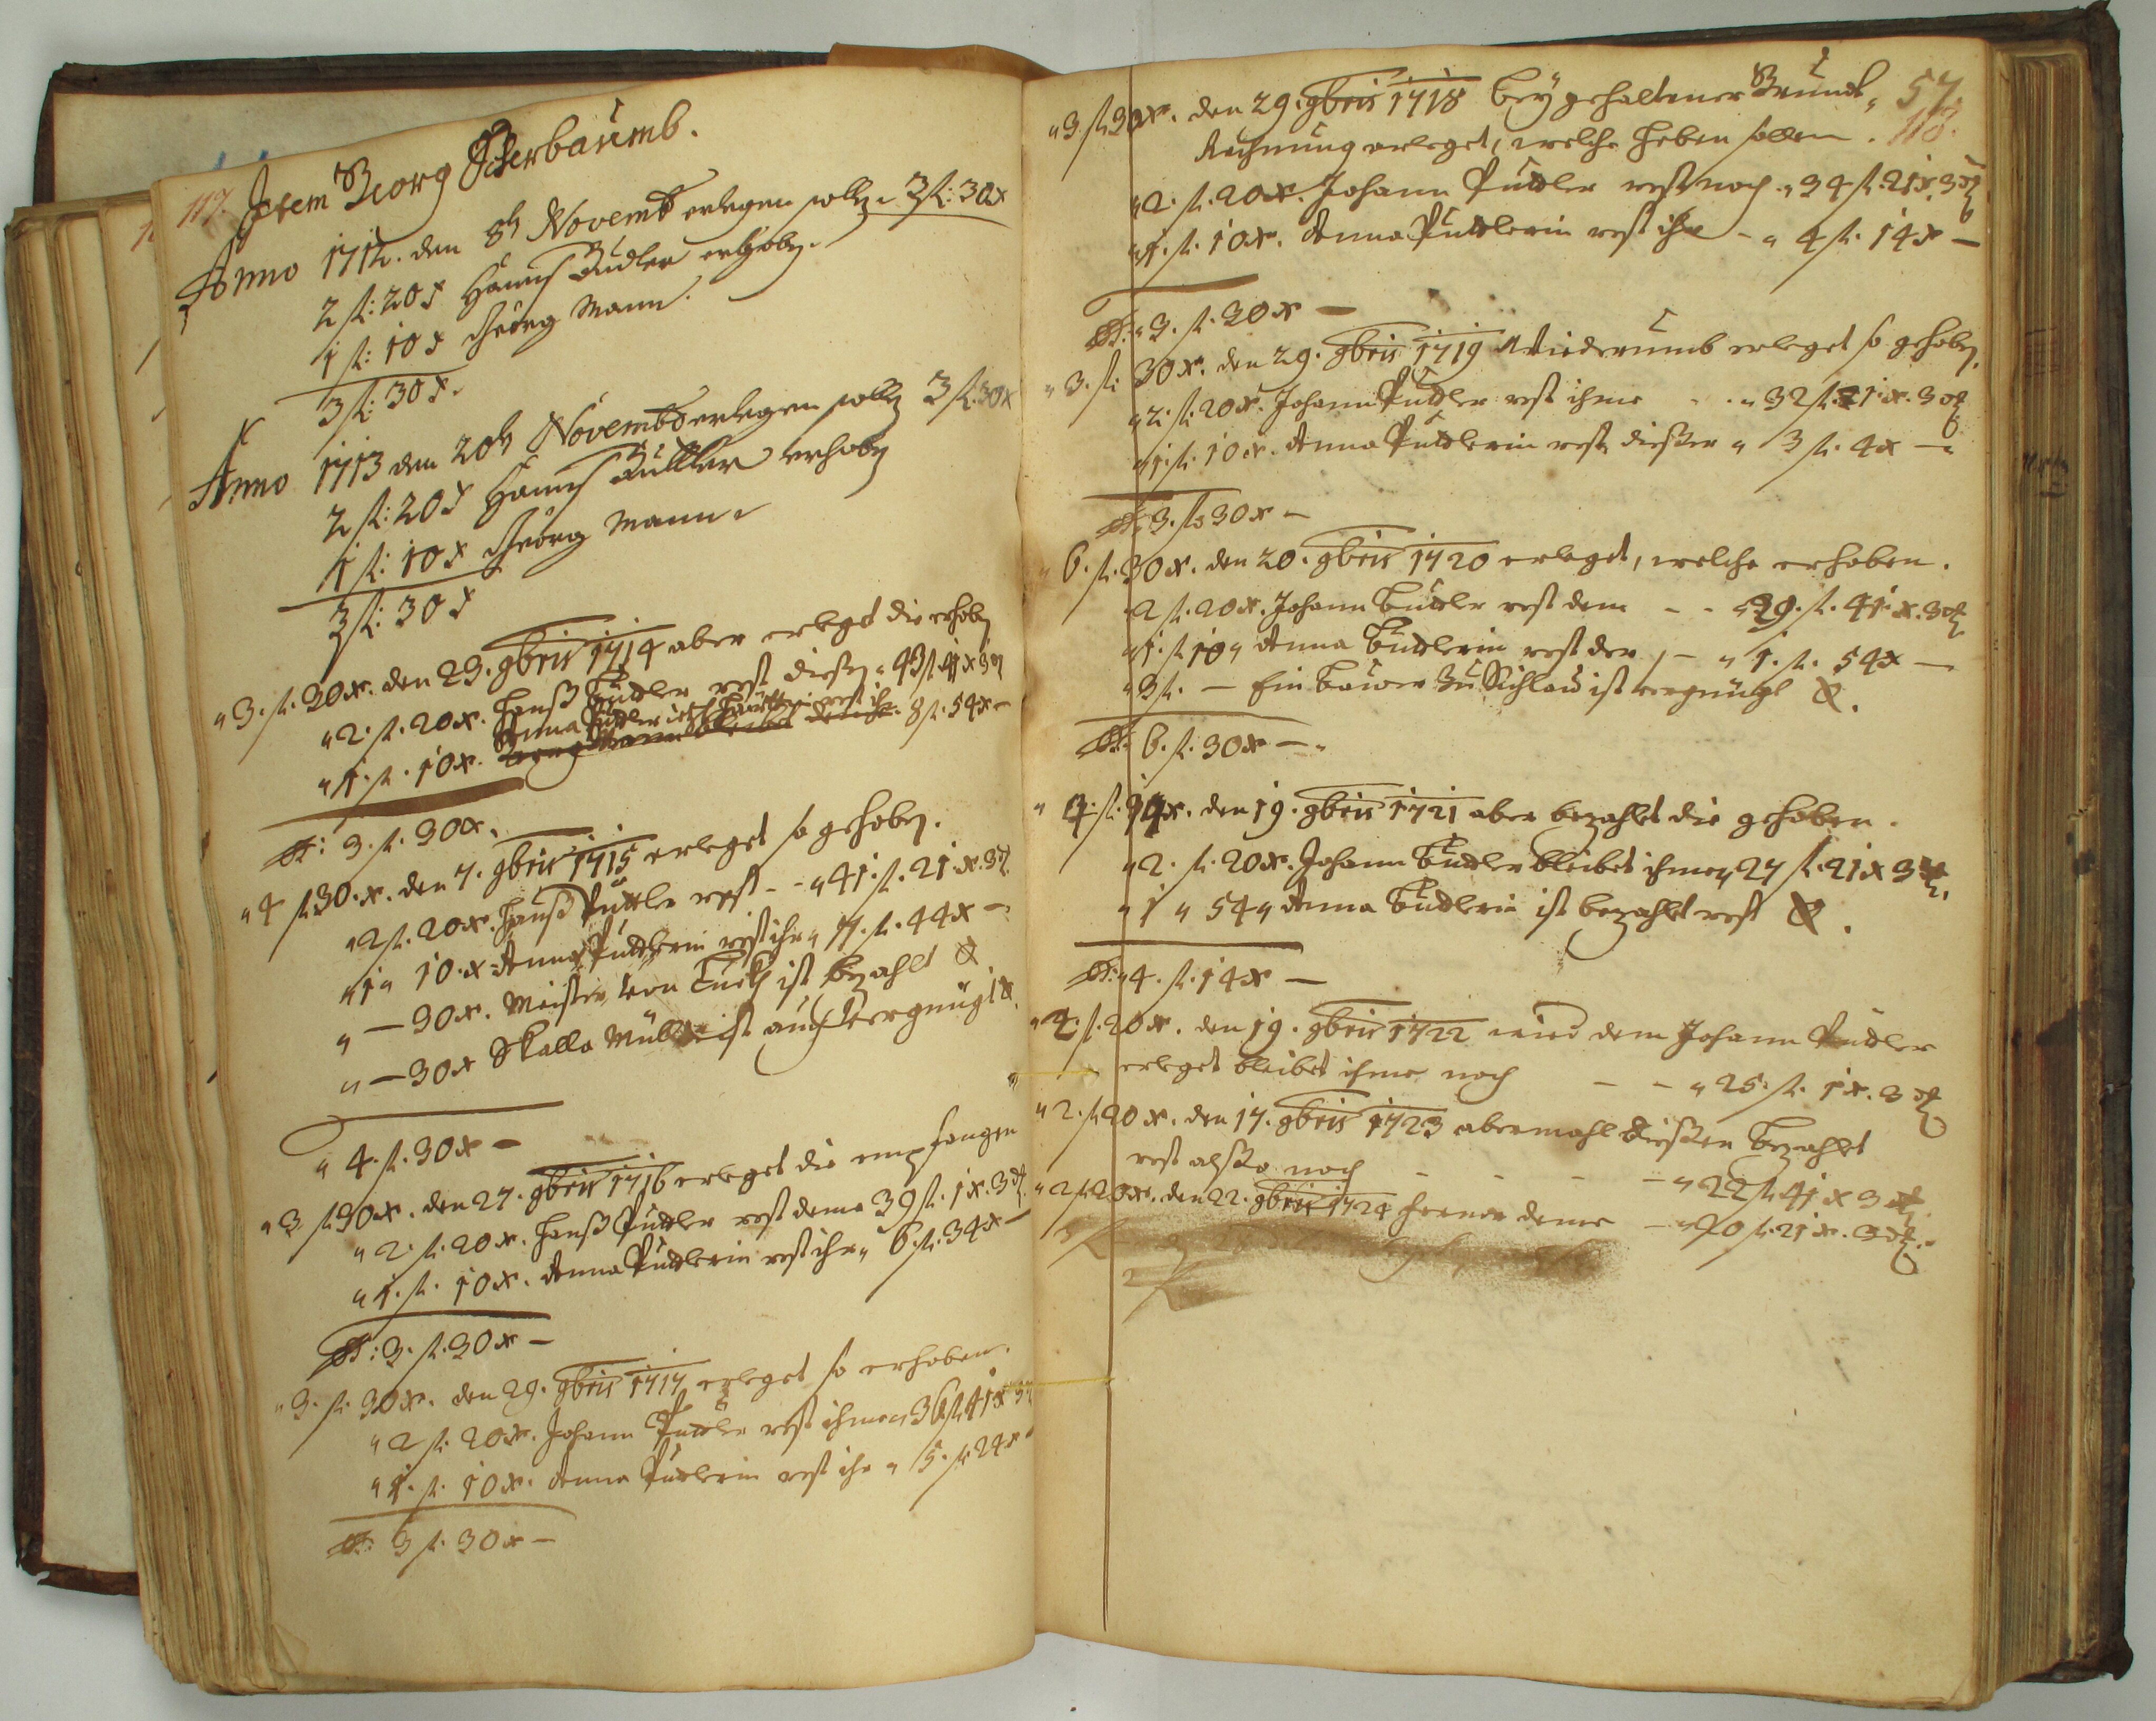 117.
Item Georg Bierbaumb.
Anno 1712. den 8t Novemb erlegen sollen 3 fl: 30 x
2 fl: 20 x Hannß Budler erhoben.
1 fl: 10 x Georg Mann.
3 fl: 30 x.
Anno 1713 den 20t Novemb erlegen sollen 3 fl: 30 x
2 fl: 20 x Hannß Buttler erhoben
1 fl: 10 x Georg Mann
3 fl: 30 x
3. fl. 30 x. den 29. 9bris 1714 aber erlegt die erhoben
2. fl. 20 x. Hanß Budler rest dießen 43 fl. 41 x 3 d
1. fl. 10 x. Anna rest ihr 8 fl. 54 x
St: 3. fl. 30 x.
4 fl 30. x. den 7. 9bris 1715 erleget so gehoben.
2 fl. 20 x. Hanß Puttler rest - - 41. fl. 21. x. 3 d.
1 10. x. Anna Puttlerin rest ihr 7. fl. 44 x —
— 30 x. Meister von ist bezahlt
— 30 x Skalla Müller ist auch vergnügt
4. fl. 30 x —
3 fl 30 x. den 27. 9bris 1716 erleget die empfangen
2. fl. 20 x. Hanß Puttler rest deme 39 fl. 1 x. 3 d.
1. fl. 10 x. Anna Puttlerin rest ihr 6. fl. 34 x —
St: 3. fl. 30 x —
3. fl. 30 x. den 29. 9bris 1717 erleget so erhoben.
2 fl. 20 x. Johann Puttler rest ihme 36 fl 41 x 3 d
1. fl. 10 x. Anna Puttlerin rest ihr 5. fl 24 x
St: 3 fl. 30 x —
57.
118.
3. fl. 30 x. den 29. 9bris 1718 bey gehaltener Grundt
Rechnung erleget, welche heben sollen.
2. fl. 20 x. Johann Puttler rest noch 34 fl. 21 x. 3 d
1. fl. 10 x. Anna Puttlerin rest ihr - 4 fl. 14 x —
St: 3. fl. 30 x —
3. fl. 30 x. den 29. 9bris 1719 Wiederumb erleget so gehoben.
2. fl. 20 x. Johann Puttler rest ihme - - 32 fl. 21. x. 3 d
1. fl. 10 x. Anna Puttlerin rest dießer 3 fl. 4 x —
St: 3. fl 30 x —
6. fl. 30 x. den 20. 9bris 1720 erleget, welche erhoben.
2 fl. 20 x. Johann Buttler rest dem - - 29. fl. 41. x. 3 d
1. fl 10 Anna Buttlerin rest der, - 1. fl. 54 x —
3 fl. — Ein Bauer Zu ist vergnügt
St: 6. fl. 30 x —
4. fl. 14 x. den 19. 9bris 1721 aber bezahlt die gehoben.
2. fl. 20 x. Johann Buttler bleibet ihme 27 fl. 21 x 3 d
1 54 Anna Buttlerin ist bezahlt rest
St: 4. fl. 14 x —
2. fl. 20 x. den 19. 9bris 1722 wird dem Johann Puttler
erleget bleibet ihme noch - - 25. fl. 1 x. 3 d
2. fl 20 x. den 17. 9bris 1723 abermahl dießen bezahlt
rest alßo noch - - - - 22 fl 41 x 3 d
2 fl 20 x. den 22. 9bris 1724 ferner deme — 20 fl. 21 x. 3 d.